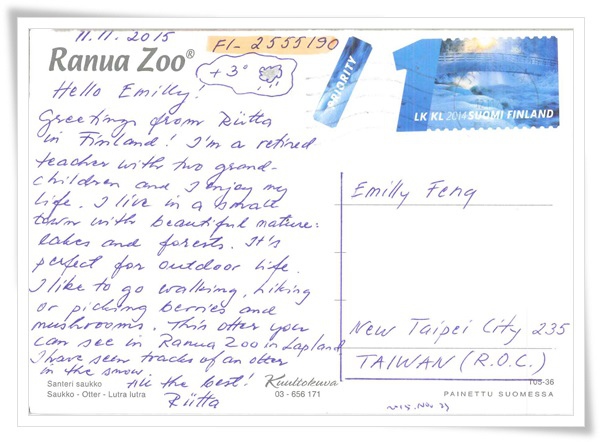 11.11.2015
FI-2555190
Ranua Zoo®
+3°
PRIORITY
1
LK KL 2014 SUOMI FINLAND
Hello Emilly!
Greetings from Riitta
in Finland! I'm a retired
teacher with two grand-
children and I enjoy my
life. I live in a small
town with beautiful nature:
lakes and forests. It's
perfect for outdoor life.
I like to go walking, hiking
or picking berries and
mushrooms. This otter you
can see in Ranua Zoo in Lapland.
I have seen tracks of an otter
in the snow.
All the best!
Riitta
Emilly Feng
New Taipei City 235
TAIWAN (R.O.C.)
Santeri saukko
Saukko - Otter - Lutra lutra
Kuultokuva
03 - 656 171
105-36
PAINETTU SUOMESSA